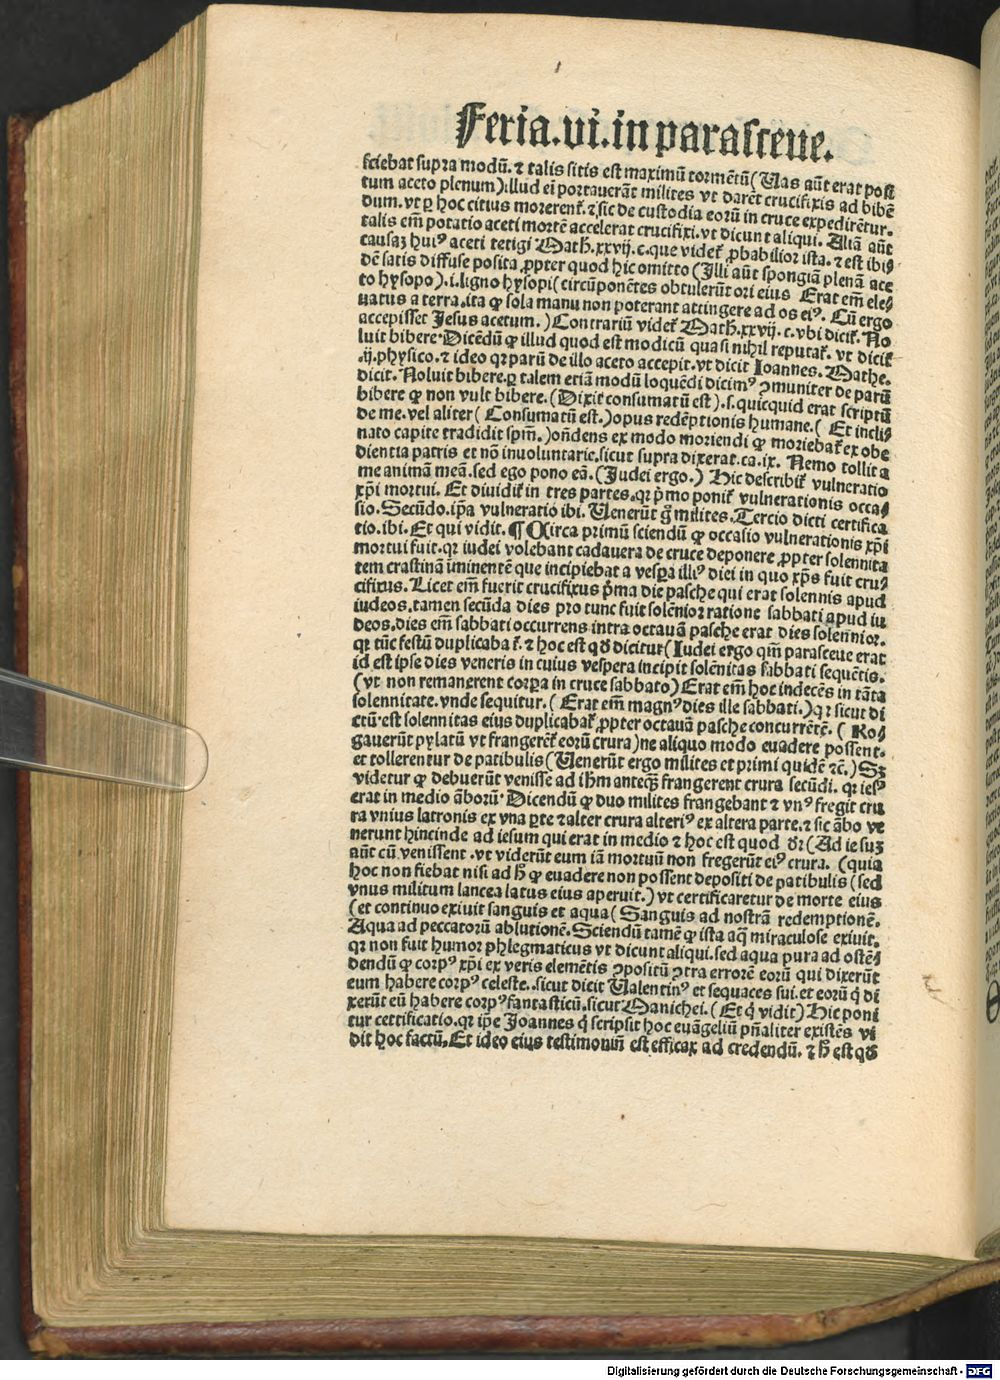 Feria.vi.in parasceue.
sciebat supra modū. ⁊ talis sitis est maximū tormētū (Uas aūt erat posi
tum aceto plenum) illud ei portauerāt milites vt darēt crucifixis ad bibē
dum. vt ꝑ hoc citius morerent᷑. ⁊ sic de custodia eorū in cruce expedirētur.
talis em̄ potatio aceti mortē accelerat crucifixi. vt dicunt aliqui. Aliā aūt
causaꝫ huiꝰ aceti tetigi Math. xxvij. c. que videt᷑ ꝓbabilior ista. ⁊ est ibi⸗
dē satis diffuse posita ꝓpter quod hic omitto (Illi aūt spongiā plenā ace
to hysopo) .i. ligno hysopi (circūponētes obtulerūt ori eius Erat em̄ ele⸗
uatus a terra. ita ꝙ sola manu non poterant attingere ad os eiꝰ. Cū ergo
accepisset Jesus acetum.) Contrariū videt᷑ Math. xxvij. c. vbi dicit᷑. No
luit bibere. Dicēdū ꝙ illud quod est modicū quasi nihil reputat᷑. vt dicit᷑
.ij. physico. ⁊ ideo qꝛ parū de illo aceto accepit. vt dicit Joannes. Mathe.
dicit. Noluit bibere. ꝑ talem etiā modū loquēdi dicimꝰ ꝯmuniter de parū
bibere ꝙ non vult bibere. (Dixit consumatū est) .s. quicquid erat scriptū
de me. vel aliter (Consumatū est.) opus redēptionis humane. (Et incli⸗
nato capite tradidit spm̄.) on̄dens ex modo moriendi ꝙ moriebat᷑ ex obe
dientia patris et nō inuoluntarie. sicut supra dixerat. ca. ix. Nemo tollit a
me animā meā. sed ego pono eā. (Judei ergo.) Hic describit᷑ vulneratio
xp̄i mortui. Et diuidit᷑ in tres partes. qꝛ p̄mo ponit᷑ vulnerationis occa⸗
sio. Secūdo. ip̄a vulneratio ibi. Uenerūt g̊ milites. Tercio dicti certifica
tio. ibi. Et qui vidit. ¶ Circa primū sciendū ꝙ occasio vulnerationis xp̄i
mortui fuit. qꝛ iudei volebant cadauera de cruce deponere ꝓpter solennita
tem crastinā iminentē que incipiebat a vesꝑa illiꝰ diei in quo xp̄s fuit cru⸗
cifixus. Licet em̄ fuerit crucifixus p̄ma die pasche qui erat solennis apud
iudeos. tamen secūda dies pro tunc fuit solēnior ratione sabbati apud iu
deos. dies em̄ sabbati occurrens intra octauā pasche erat dies solennior.
qꝛ tūc festū duplicabat᷑. ⁊ hoc est qd̄ dicitur (Judei ergo qm̄ parasceue erat
id est ipse dies veneris in cuius vespera incipit solēnitas sabbati sequētis.
(vt non remanerent corꝑa in cruce sabbato) Erat em̄ hoc indecēs in tāta
solennitate. vnde sequitur. (Erat em̄ magnꝰ dies ille sabbati.) qꝛ sicut di
ctū est solennitas eius duplicabat᷑ ꝓpter octauā pasche concurrētē. (Ro⸗
gauerūt pylatū vt frangerēt᷑ eorū crura) ne aliquo modo euadere possent.
et tollerentur de patibulis (Uenerūt ergo milites et primi quidē ⁊c.) Sꝫ
videtur ꝙ debuerūt venisse ad ihm̄ anteqꝫ frangerent crura secūdi. qꝛ iesꝰ
erat in medio āborū. Dicendū ꝙ duo milites frangebant ⁊ vnꝰ fregit cru
ra vnius latronis ex vna ꝑte ⁊ alter crura alteriꝰ ex altera parte. ⁊ sic ābo ve
nerunt hincinde ad iesum qui erat in medio ⁊ hoc est quod dr̄ (Ad iesuꝫ
aūt cū venissent .vt viderūt eum iā mortuū non fregerūt eiꝰ crura. (quia
hoc non fiebat nisi ad h̄ ꝙ euadere non possent depositi de patibulis (sed
vnus militum lancea latus eius aperuit.) vt certificaretur de morte eius
(et continuo exiuit sanguis et aqua (Sanguis ad nostrā redemptionē.
Aqua ad peccatorū ablutionē. Sciendū tamē ꝙ ista aq̄ miraculose exiuit.
qꝛ non fuit humor phlegmaticus vt dicunt aliqui. sed aqua pura ad ostē⸗
dendū ꝙ corpꝰ xp̄i ex veris elemētis ꝯpositū ꝯtra errorē eorū qui dixerūt
eum habere corpꝰ celeste. sicut dicit Ualentinꝰ et sequaces sui. et eorū q̄ di
xerūt eū habere corpꝰ fantasticū. sicut Manichei. (Et q̄ vidit) Hic poni
tur certificatio. qꝛ ip̄e Joannes q̄ scripsit hoc euāgeliū pn̄aliter existēs vi
dit hoc factū. Et ideo eius testimoniū est efficax ad credendū. ⁊ h̄ est qd̄
Digitalisierung gefördert durch die Deutsche Forschungsgemeinschaft - DFG